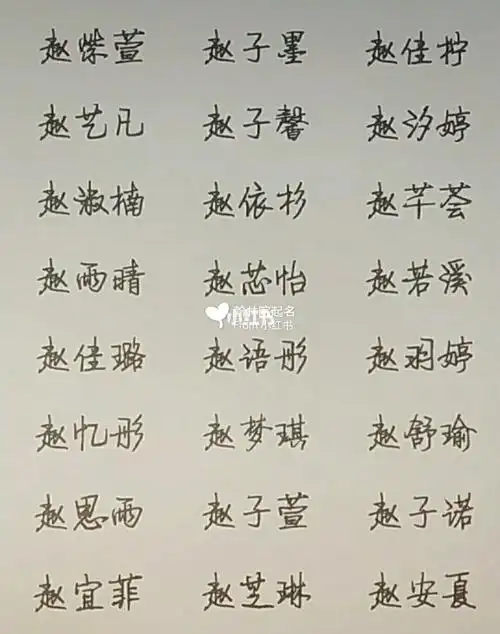 赵紫萱 赵子墨 赵佳柠
赵艺凡 赵子馨 赵汐婷
赵淑楠 赵依杉 赵芊荟
赵雨晴 赵芯怡 赵若溪
小红书
起名
小红书
赵佳璐 赵语彤 赵羽婷
赵忆彤 赵梦琪 赵舒瑜
赵思雨 赵子萱 赵子诺
赵宜菲 赵芝琳 赵安夏